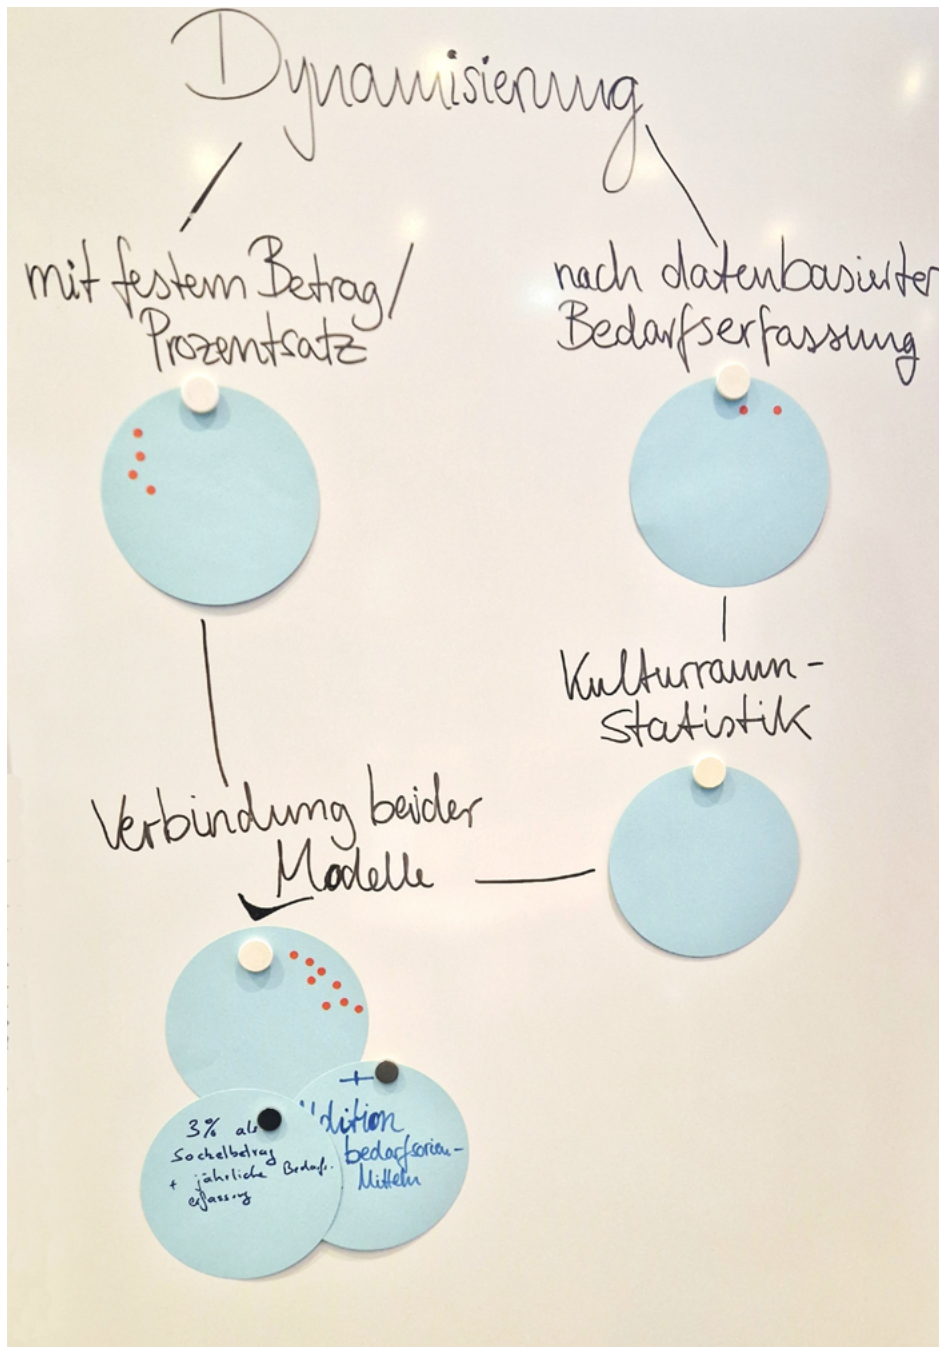 Dynamisierung
mit festem Betrag/
Prozentsatz
nach datenbasierter
Bedarfserfassung
Kulturraum-
Statistik
Verbindung beider
Modelle
3% als
Sockelbetrag
+ jährliche Bedarfs-
erfassung
+
bedarfsorien-
Mitteln